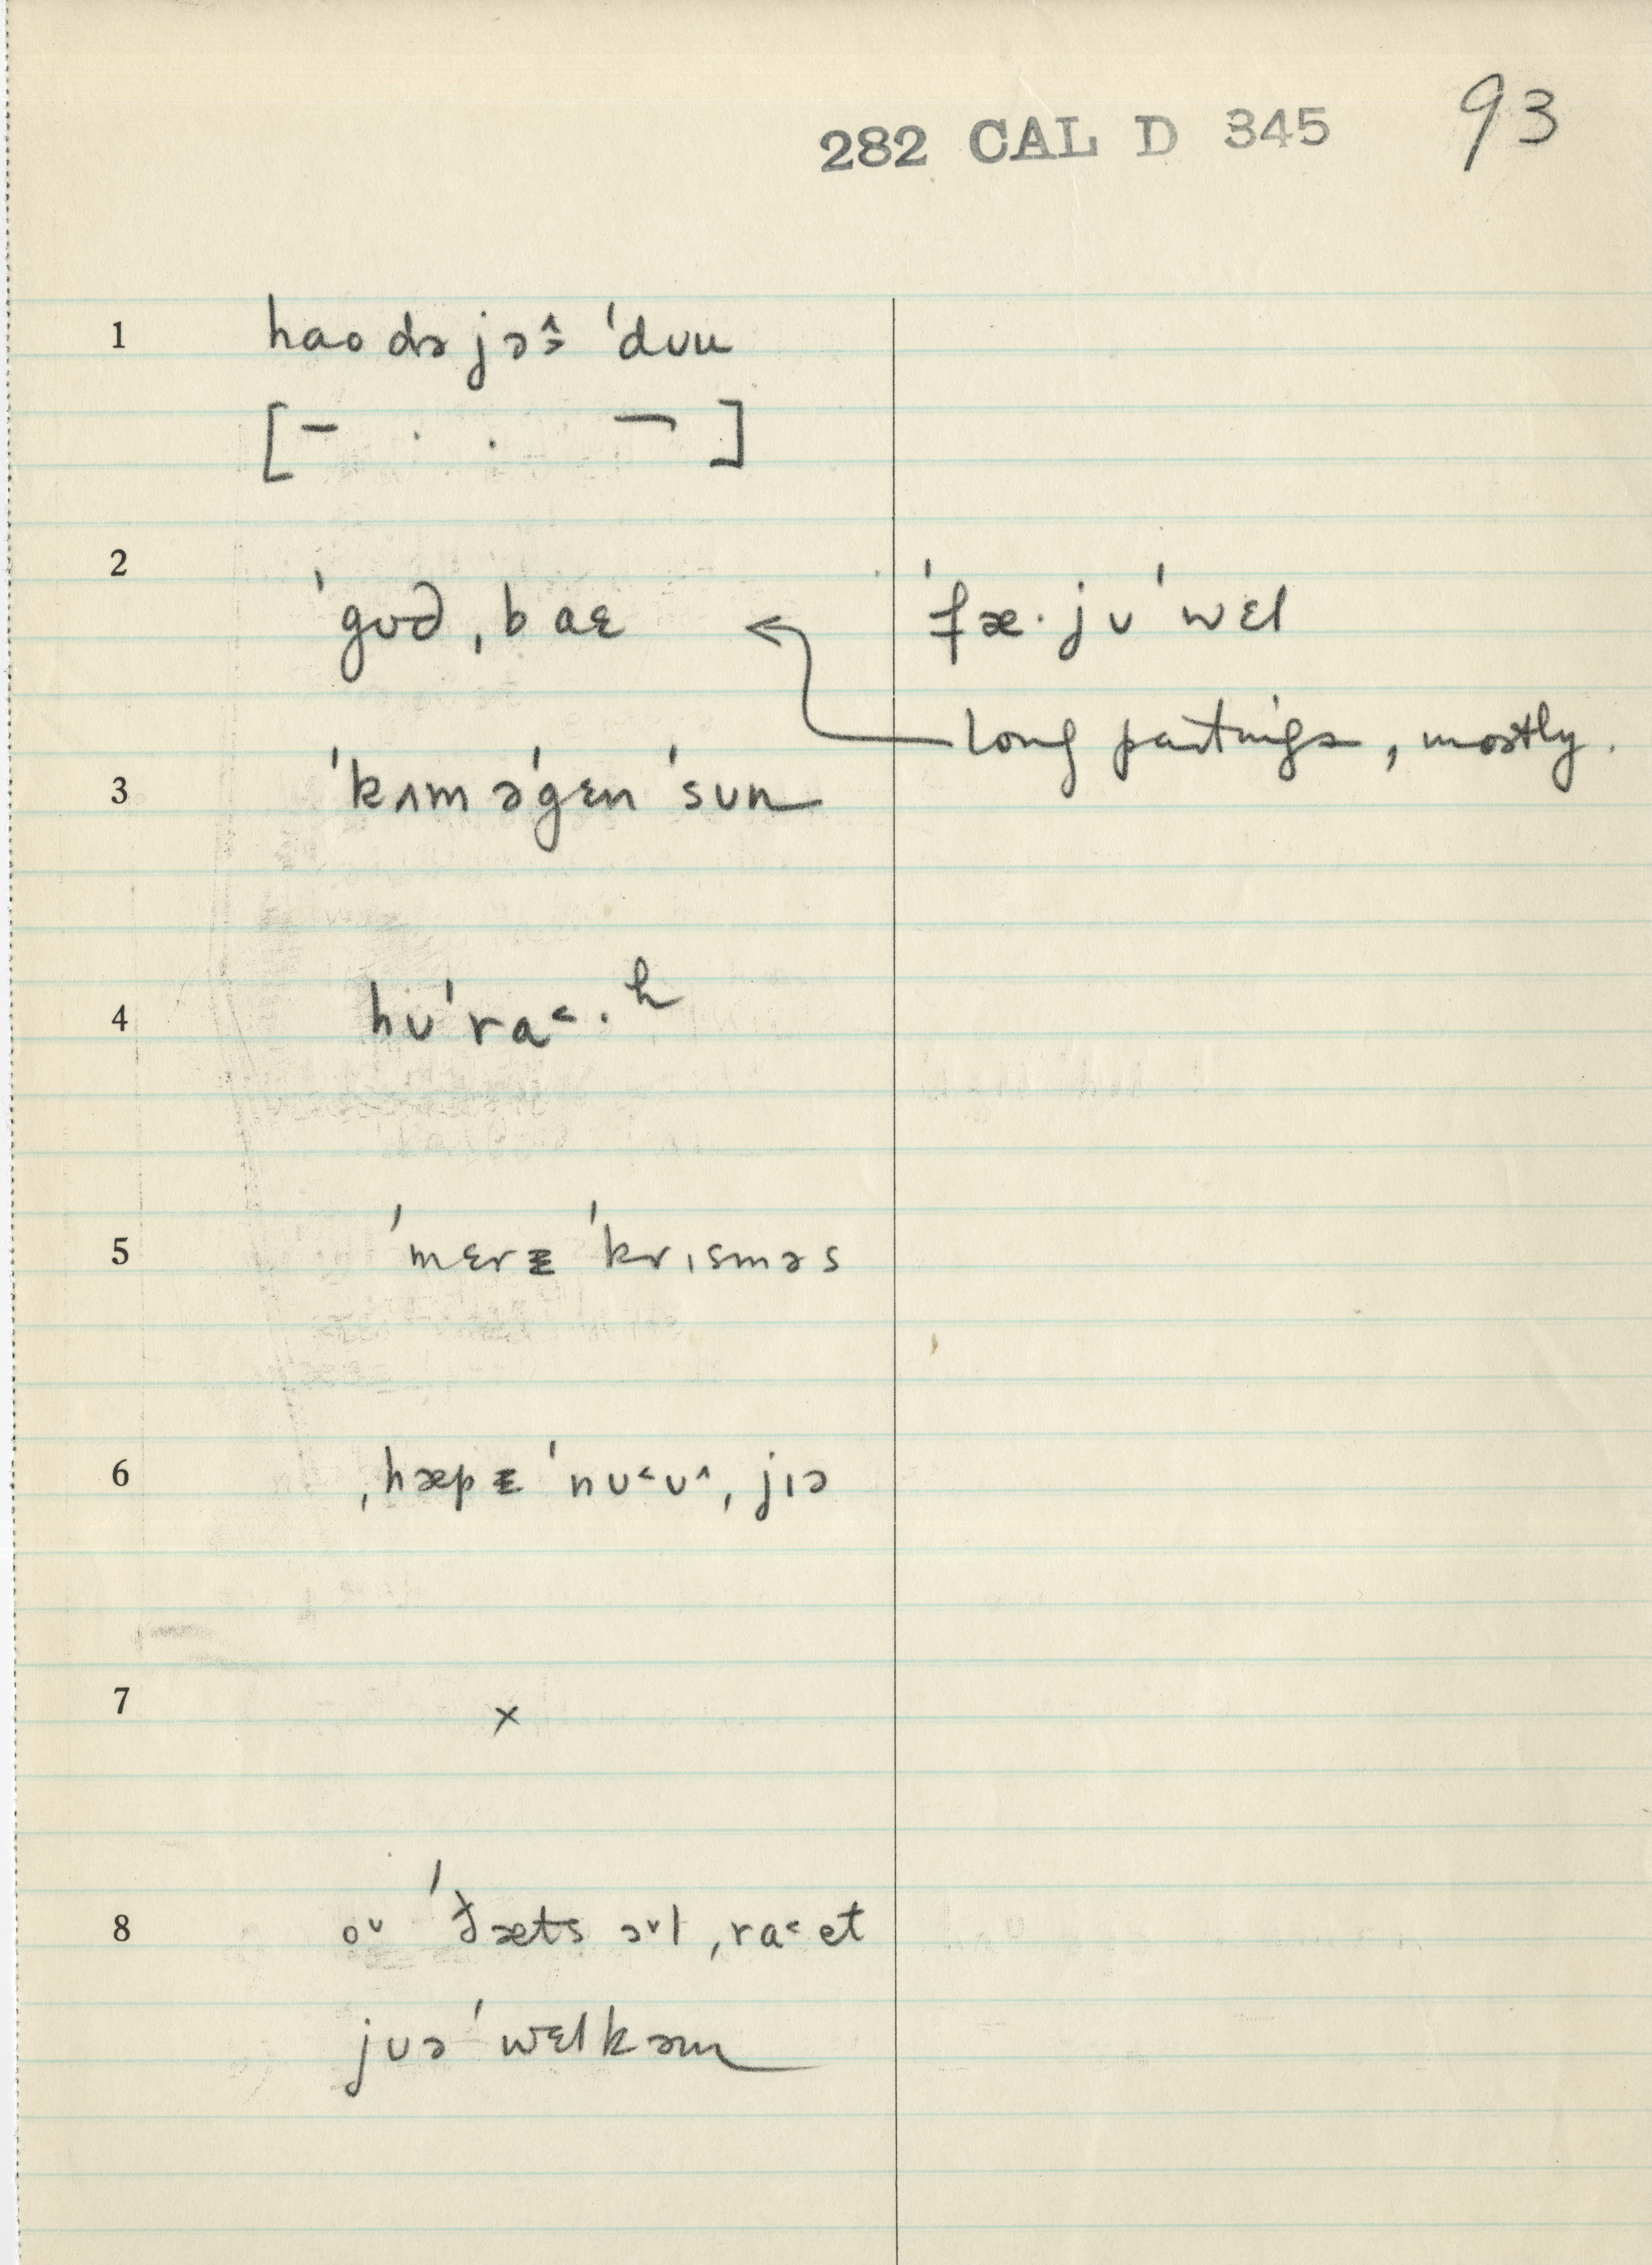 282 CAL D 345 93
1 haodə jə˄˃ ˈdʊu
[– . . ¬]
2 ˈgʊd ˌbaɛ ˈfæ·jʊˈwɛl
long partings, mostly.
3 ˈkʌm əˈgɛn ˈsun
4 hʊˈra˂·ʰ
5 ˈmɛrɪ ˈkrɪsməs
6 ˌhæpɪ ˈnʊ˂ʊ˄ ˌjɪə
7 ×
8 o˅ ˈðæts ɔ˅l ˌra˂et
jʊə ˈwɛlkəm